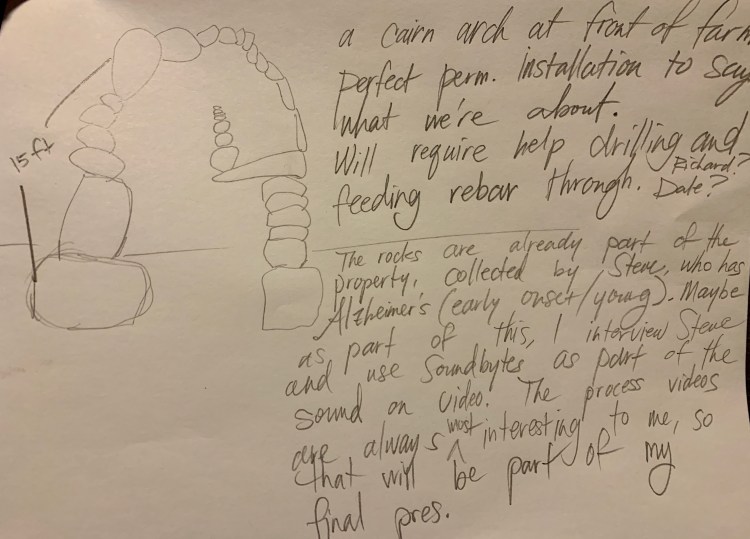 a cairn arch at front of farm
perfect perm. installation to say
what we're about.
Will require help drilling and
Richard?
feeding rebar through. Date?
15 ft
The rocks are already part of the
property, collected by Steve, who has
Alzheimer's (early onset/young). Maybe
as part of this, I interview Steve
and use soundbytes as part of the
sound on video. The process videos
are always most interesting to me, so
that will be part of my
final pres.